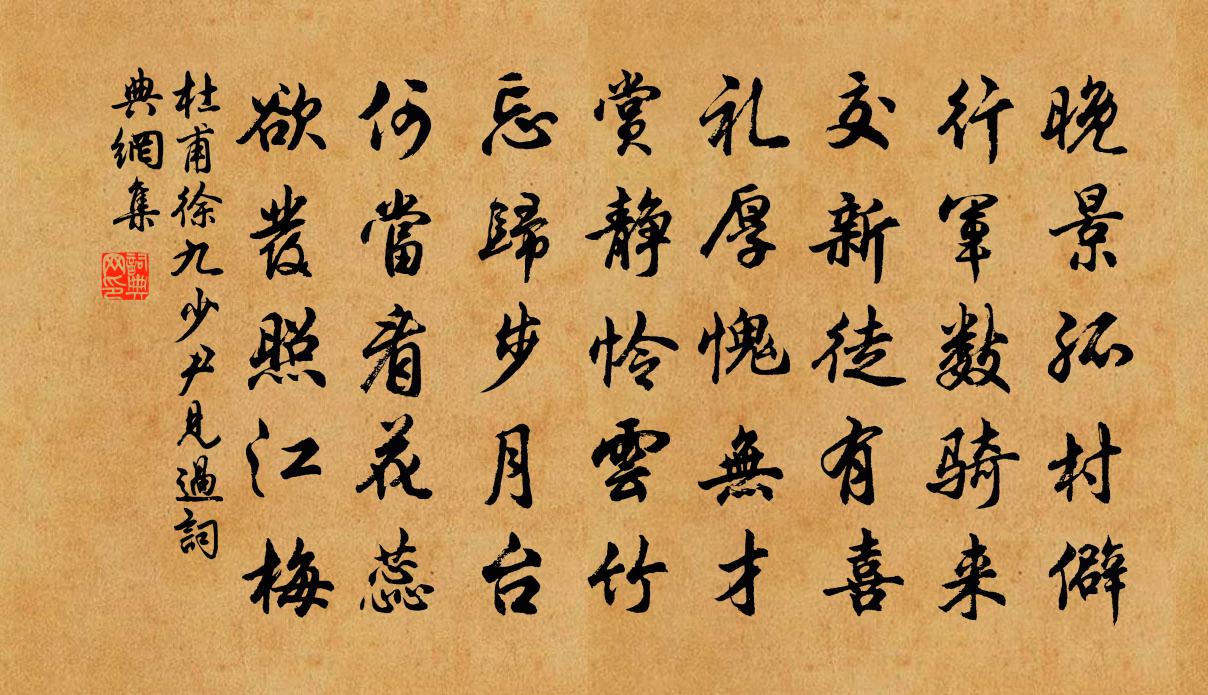 晚景孤村僻
行軍數騎来
交新徒有喜
礼厚愧無才
赏静怜雲竹
忘歸步月台
何當看花蕊
欲發照江梅
杜甫徐九少尹見過詞
典網集
詞典
网印